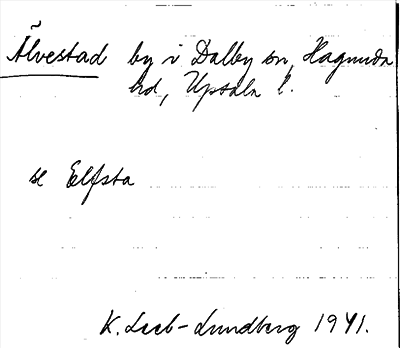 Älvestad by i Dalby sn, Hagunda
hd, Upsala l.
se Elfsta
K. Leeb-Lundberg 1941.